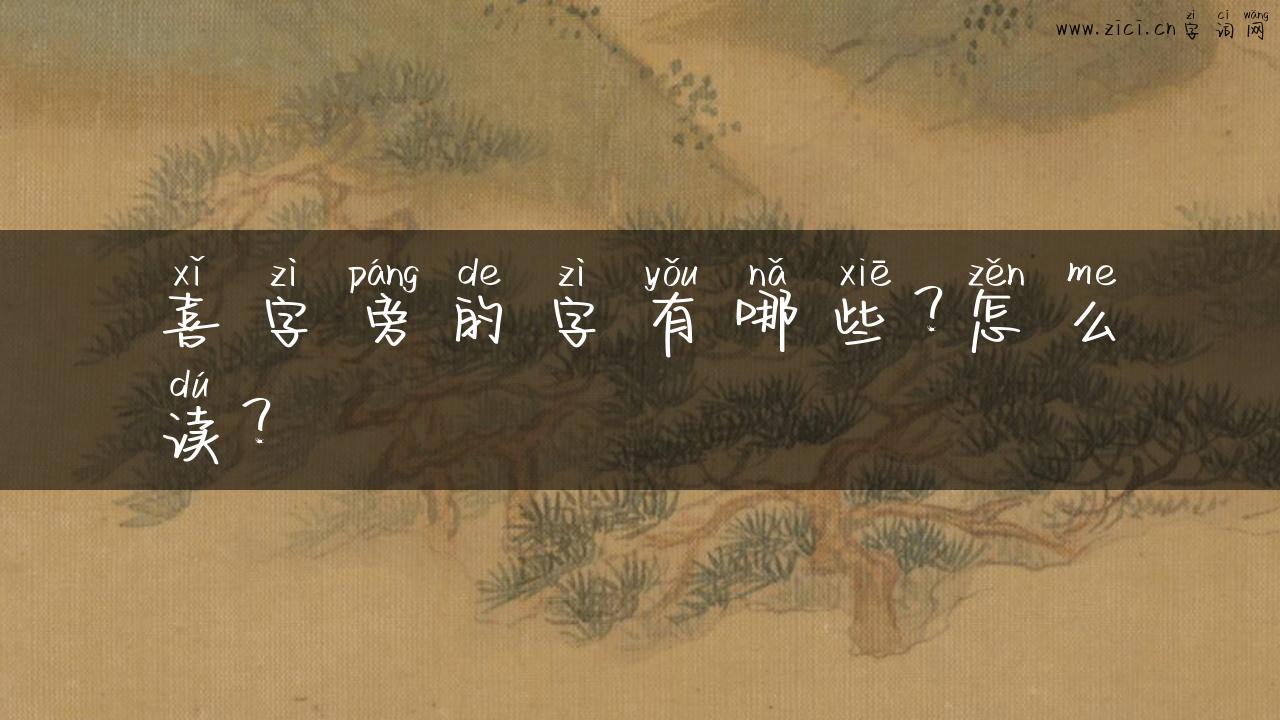 zì cí wǎng
www.zici.cn 字 词 网
xǐ zì páng de zì yǒu nǎ xiē zěn me
喜 字 旁 的 字 有 哪 些 ? 怎 么
dú
读 ?